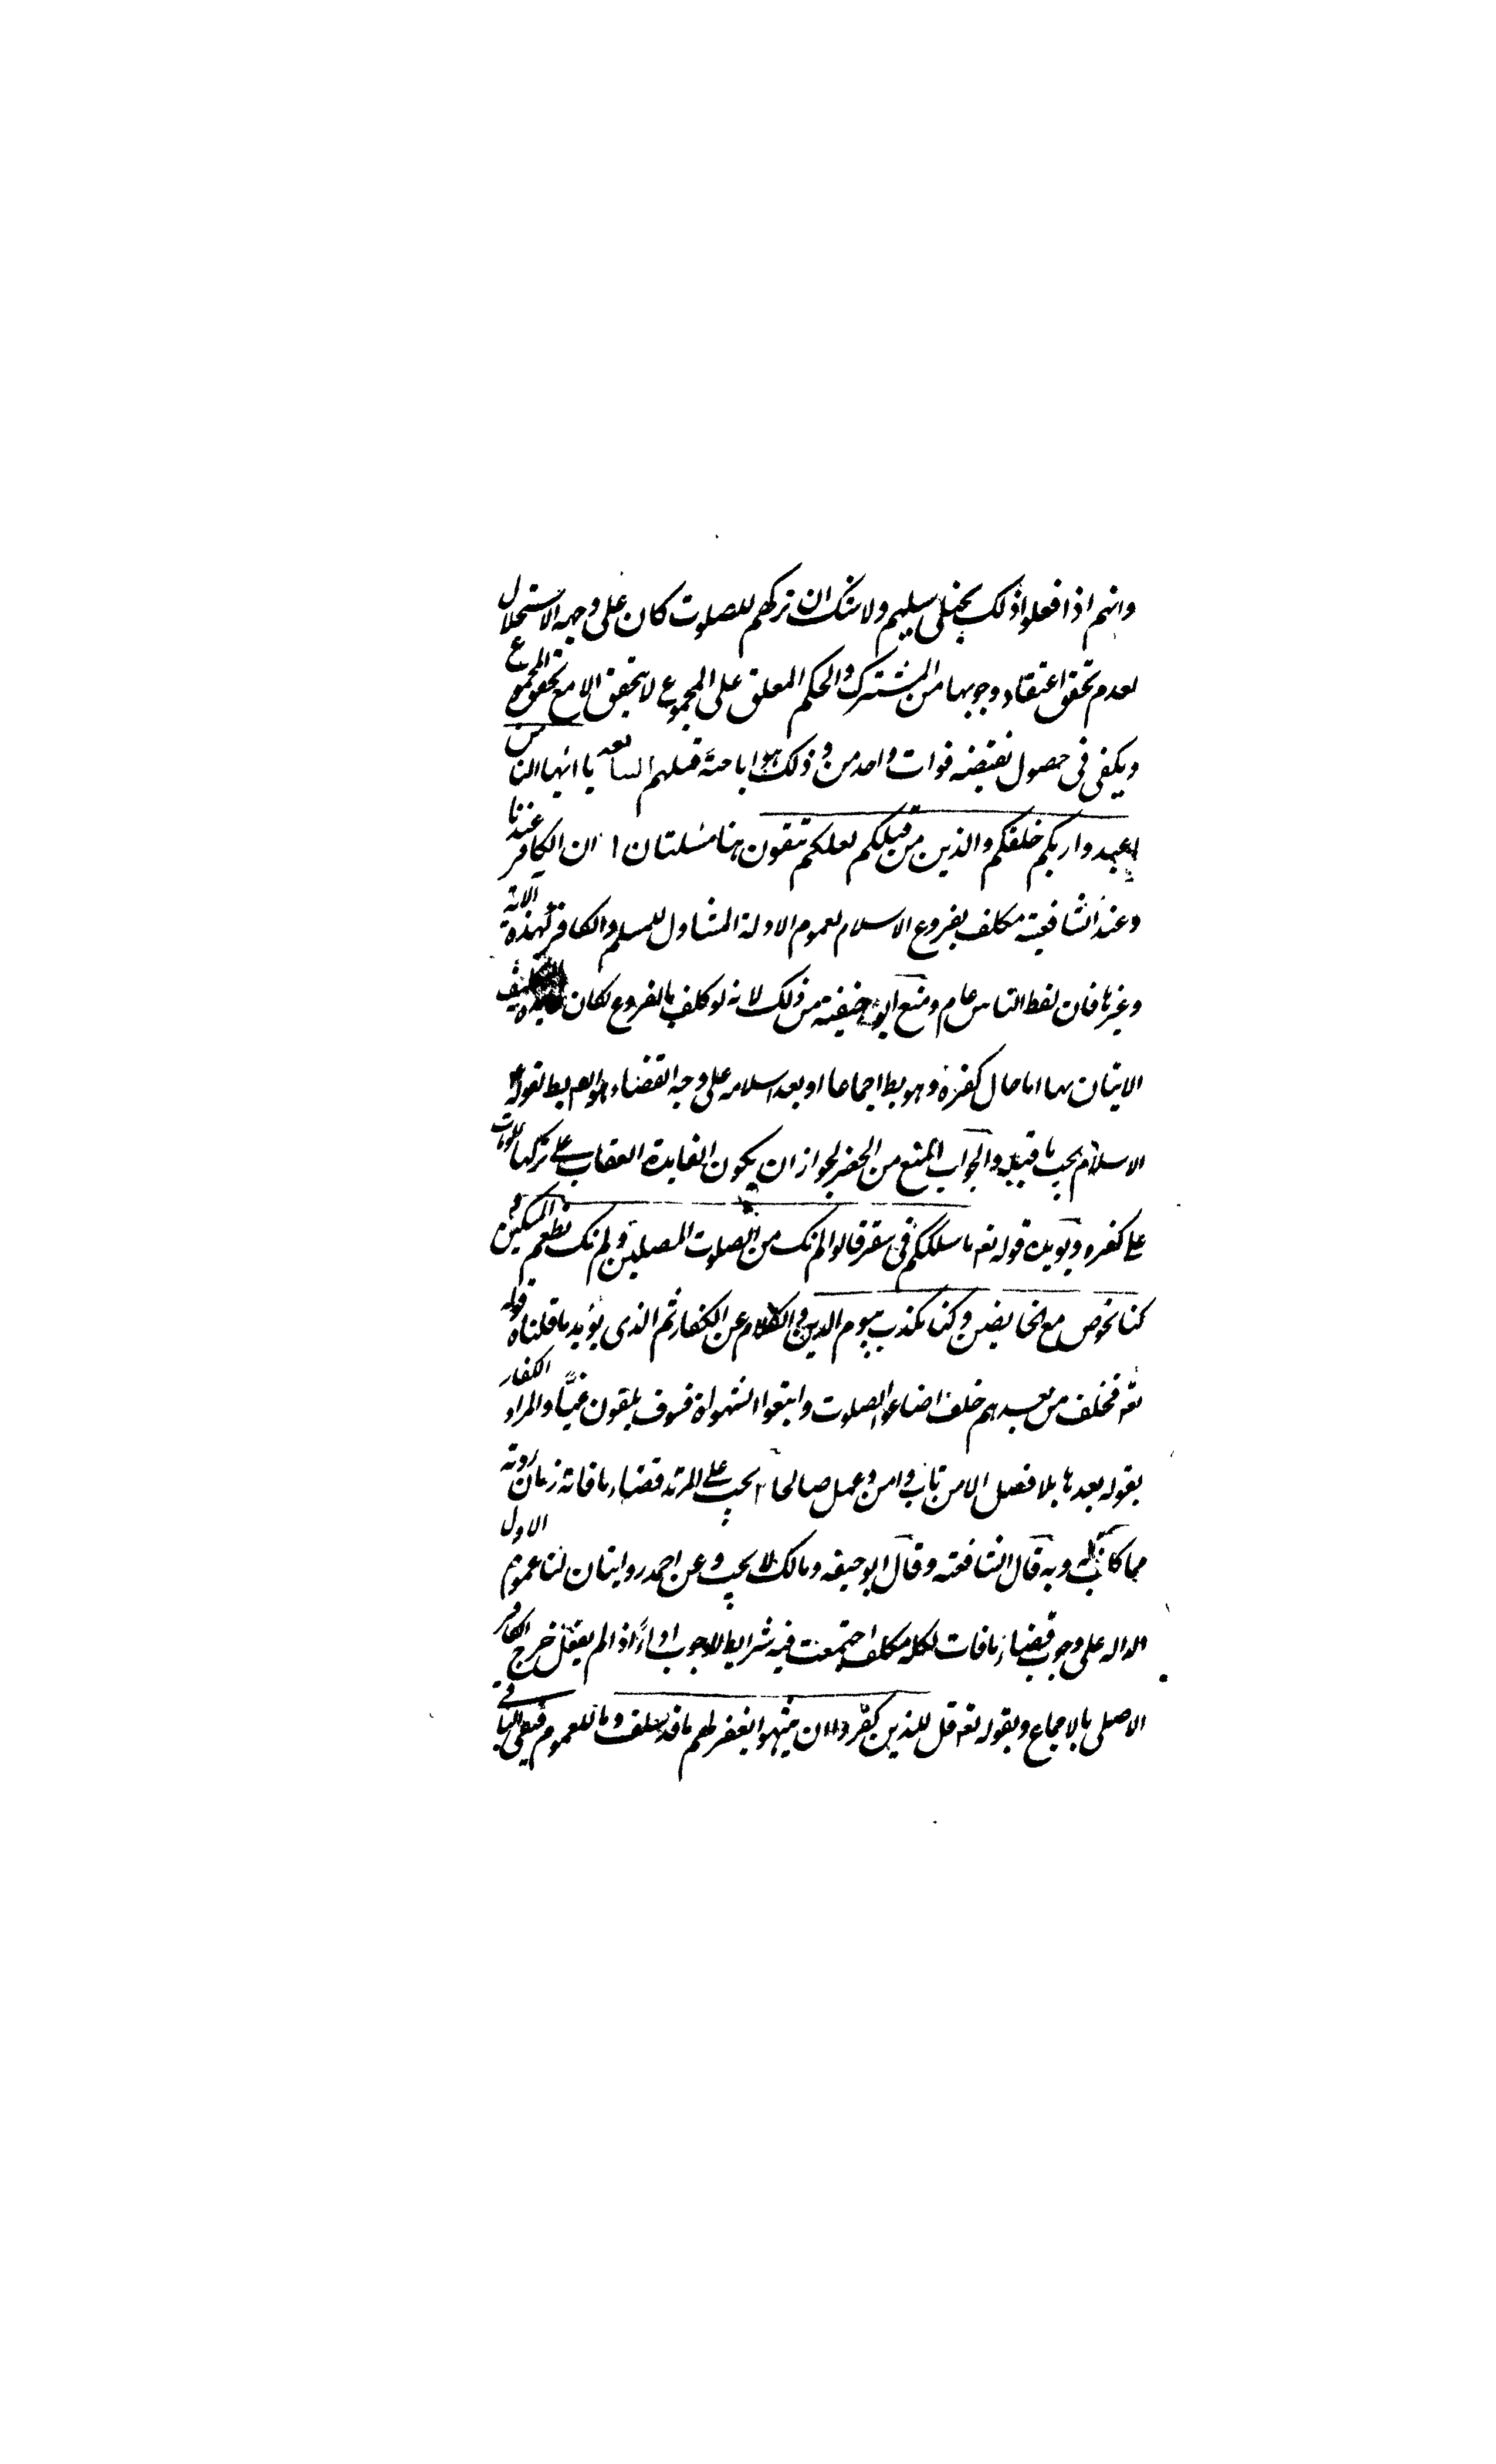 وانهم اذا فعلوا ذلك يخلى سبيلهم ولا شك ان تركهم للصلوت كان على وجه الاستحلال
لعدم تحقق اعتقاد وجوبها من المشترك والحكم المعلق على المجموع لا يتحقق الا مع تحقق المجموع
ويكفى فى حصول نقيضه فوات واحد من ذلك هو اباحة قتلهم يا ايها الناس
اعبدوا ربكم خلقكم والذين من قبلكم لعلكم تتقون هنا مسئلتان ا ان الكافر عندنا
وعند الشافعية مكلف بفروع الاسلام لعموم الادلة المتناول للمسلم والكافر لهذه الآية
وغيرها فان لفظ الناس عام ومنع ابو حنيفة من ذلك لانه لو كلف بالفروع لكان
الاتيان بها اما حال كفره وهو بط اجماعا او بعد اسلامه على وجه القضاء وهو ايضا بط لقوله
الاسلام يجب ما قبله والجواب المنع من الحصر لجواز ان يكون الفايدة العقاب على تركها لو مات
على كفره ويويده قوله تعه ما سلككم فى سقر قالوا لم نك من الصلوت المصلين ولم نك نطعم المسكين و
كنا نخوض مع الخايضين وكنا نكذب بيوم الدين فى الكلام عن الكفار ثم الذى يؤيد ما قلناه قوله
تعه فخلف من بعدهم خلف اضاعوا الصلوت واتبعوا الشهواة فسوف يلقون غيا والمراد الكفار
بقوله بعدها بلا فصل الا من تاب وامن وعمل صالحا ٢ يجب على المرتد قضاء ما فاته زمان ردته
مما كان وبه قال الشافعية وقال ابو حنيفه ومالك لا يجب وعن احمد روايتان لنا عموم الاول
الداله على وجوب قضاء ما فات لكل مكلف اجتمعت فيه شرايط الوجوب اداء اذا لم يفعل خرج الكافر
الاصلى بالاجماع وبقوله تعه قل للذين كفروا ان ينتهوا يغفر لهم ما قد سلف وما للعموم فيبقى الباقى